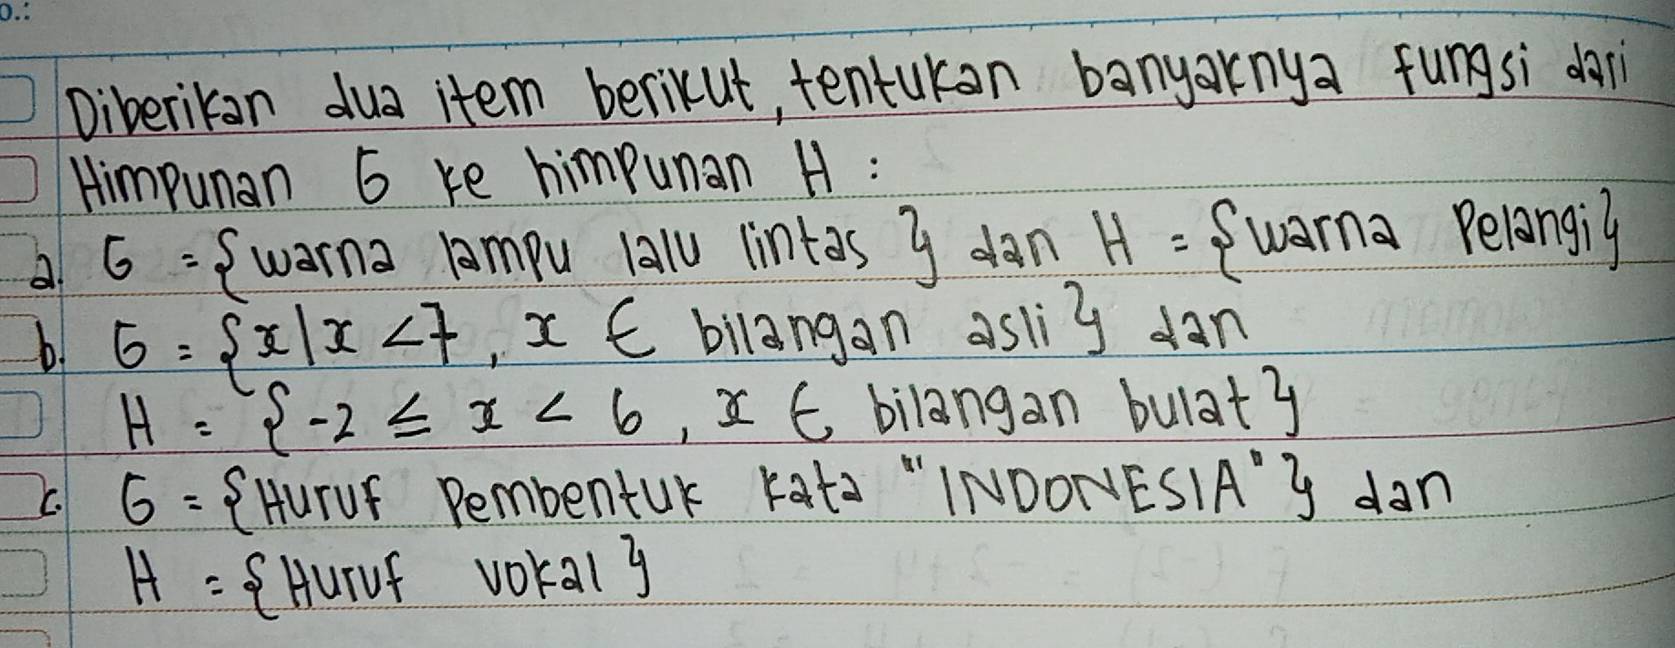 o.:
Diberikan dua item berikut, tentukan banyaknya fungsi dari
Himpunan G ke himpunan H :
a. G = {warna lampu lalu lintas } dan H = {warna Pelangi}
b. G = {x|x <7, x ∈ bilangan asli} dan
H = {-2 ≤ x < 6, x ∈ bilangan bulat}
c. G = {Huruf Pembentuk kata "INDONESIA"} dan
H = {Huruf vokal}